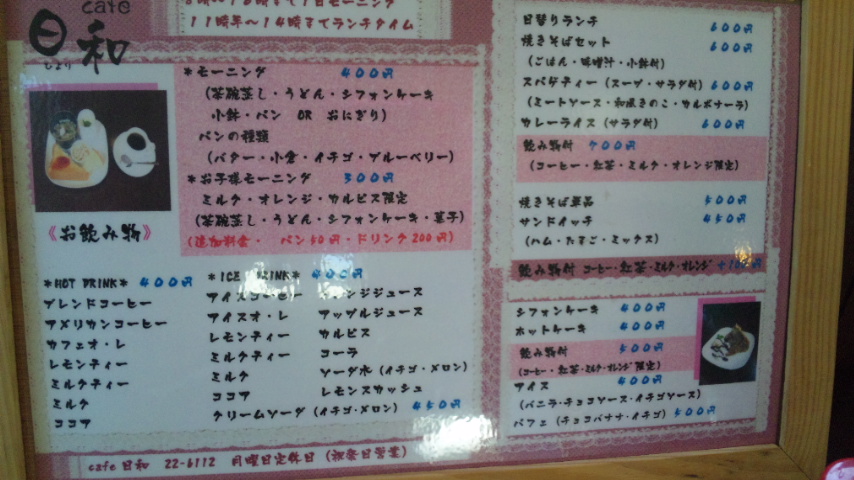 cafe
日和
ひより
11時半〜14時までランチタイム
*モーニング 400円
(茶碗蒸し・うどん・シフォンケーキ
小鉢・パン OR おにぎり)
パンの種類
(バター・小倉・イチゴ・ブルーベリー)
*お子様モーニング 300円
ミルク・オレンジ・カルピス限定
(茶碗蒸し・うどん・シフォンケーキ・菓子)
(追加料金・ パン50円・ドリンク200円)
《お飲み物》
*HOT DRINK* 400円
ブレンドコーヒー
アメリカンコーヒー
カフェオ・レ
レモンティー
ミルクティー
ミルク
ココア
*ICE DRINK* 400円
アイスコーヒー
アイスオ・レ
レモンティー
ミルクティー
ミルク
ココア
クリームソーダ(イチゴ・メロン) 450円
オレンジジュース
アップルジュース
カルピス
コーラ
ソーダ水(イチゴ・メロン)
レモンスカッシュ
日替りランチ 600円
焼きそばセット 600円
(ごはん・味噌汁・小鉢付)
スパゲティー(スープ・サラダ付) 600円
(ミートソース・和風きのこ・カルボナーラ)
カレーライス(サラダ付) 600円
飲み物付 700円
(コーヒー・紅茶・ミルク・オレンジ限定)
焼きそば単品 500円
サンドイッチ 450円
(ハム・たまご・ミックス)
飲み物付 コーヒー・紅茶・ミルク・オレンジ
シフォンケーキ 400円
ホットケーキ 400円
飲み物付 500円
(コーヒー・紅茶・ミルク・オレンジ限定)
アイス 400円
(バニラ・チョコソース・イチゴソース)
パフェ(チョコバナナ・イチゴ) 500円
cafe 日和 22-6112 月曜日定休日(祝祭日営業)